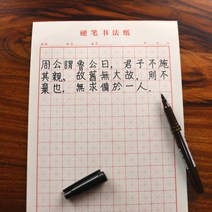 硬笔书法纸
周公謂魯公曰，君子不施
其親，故舊無大故，則不
棄也，無求備於一人。